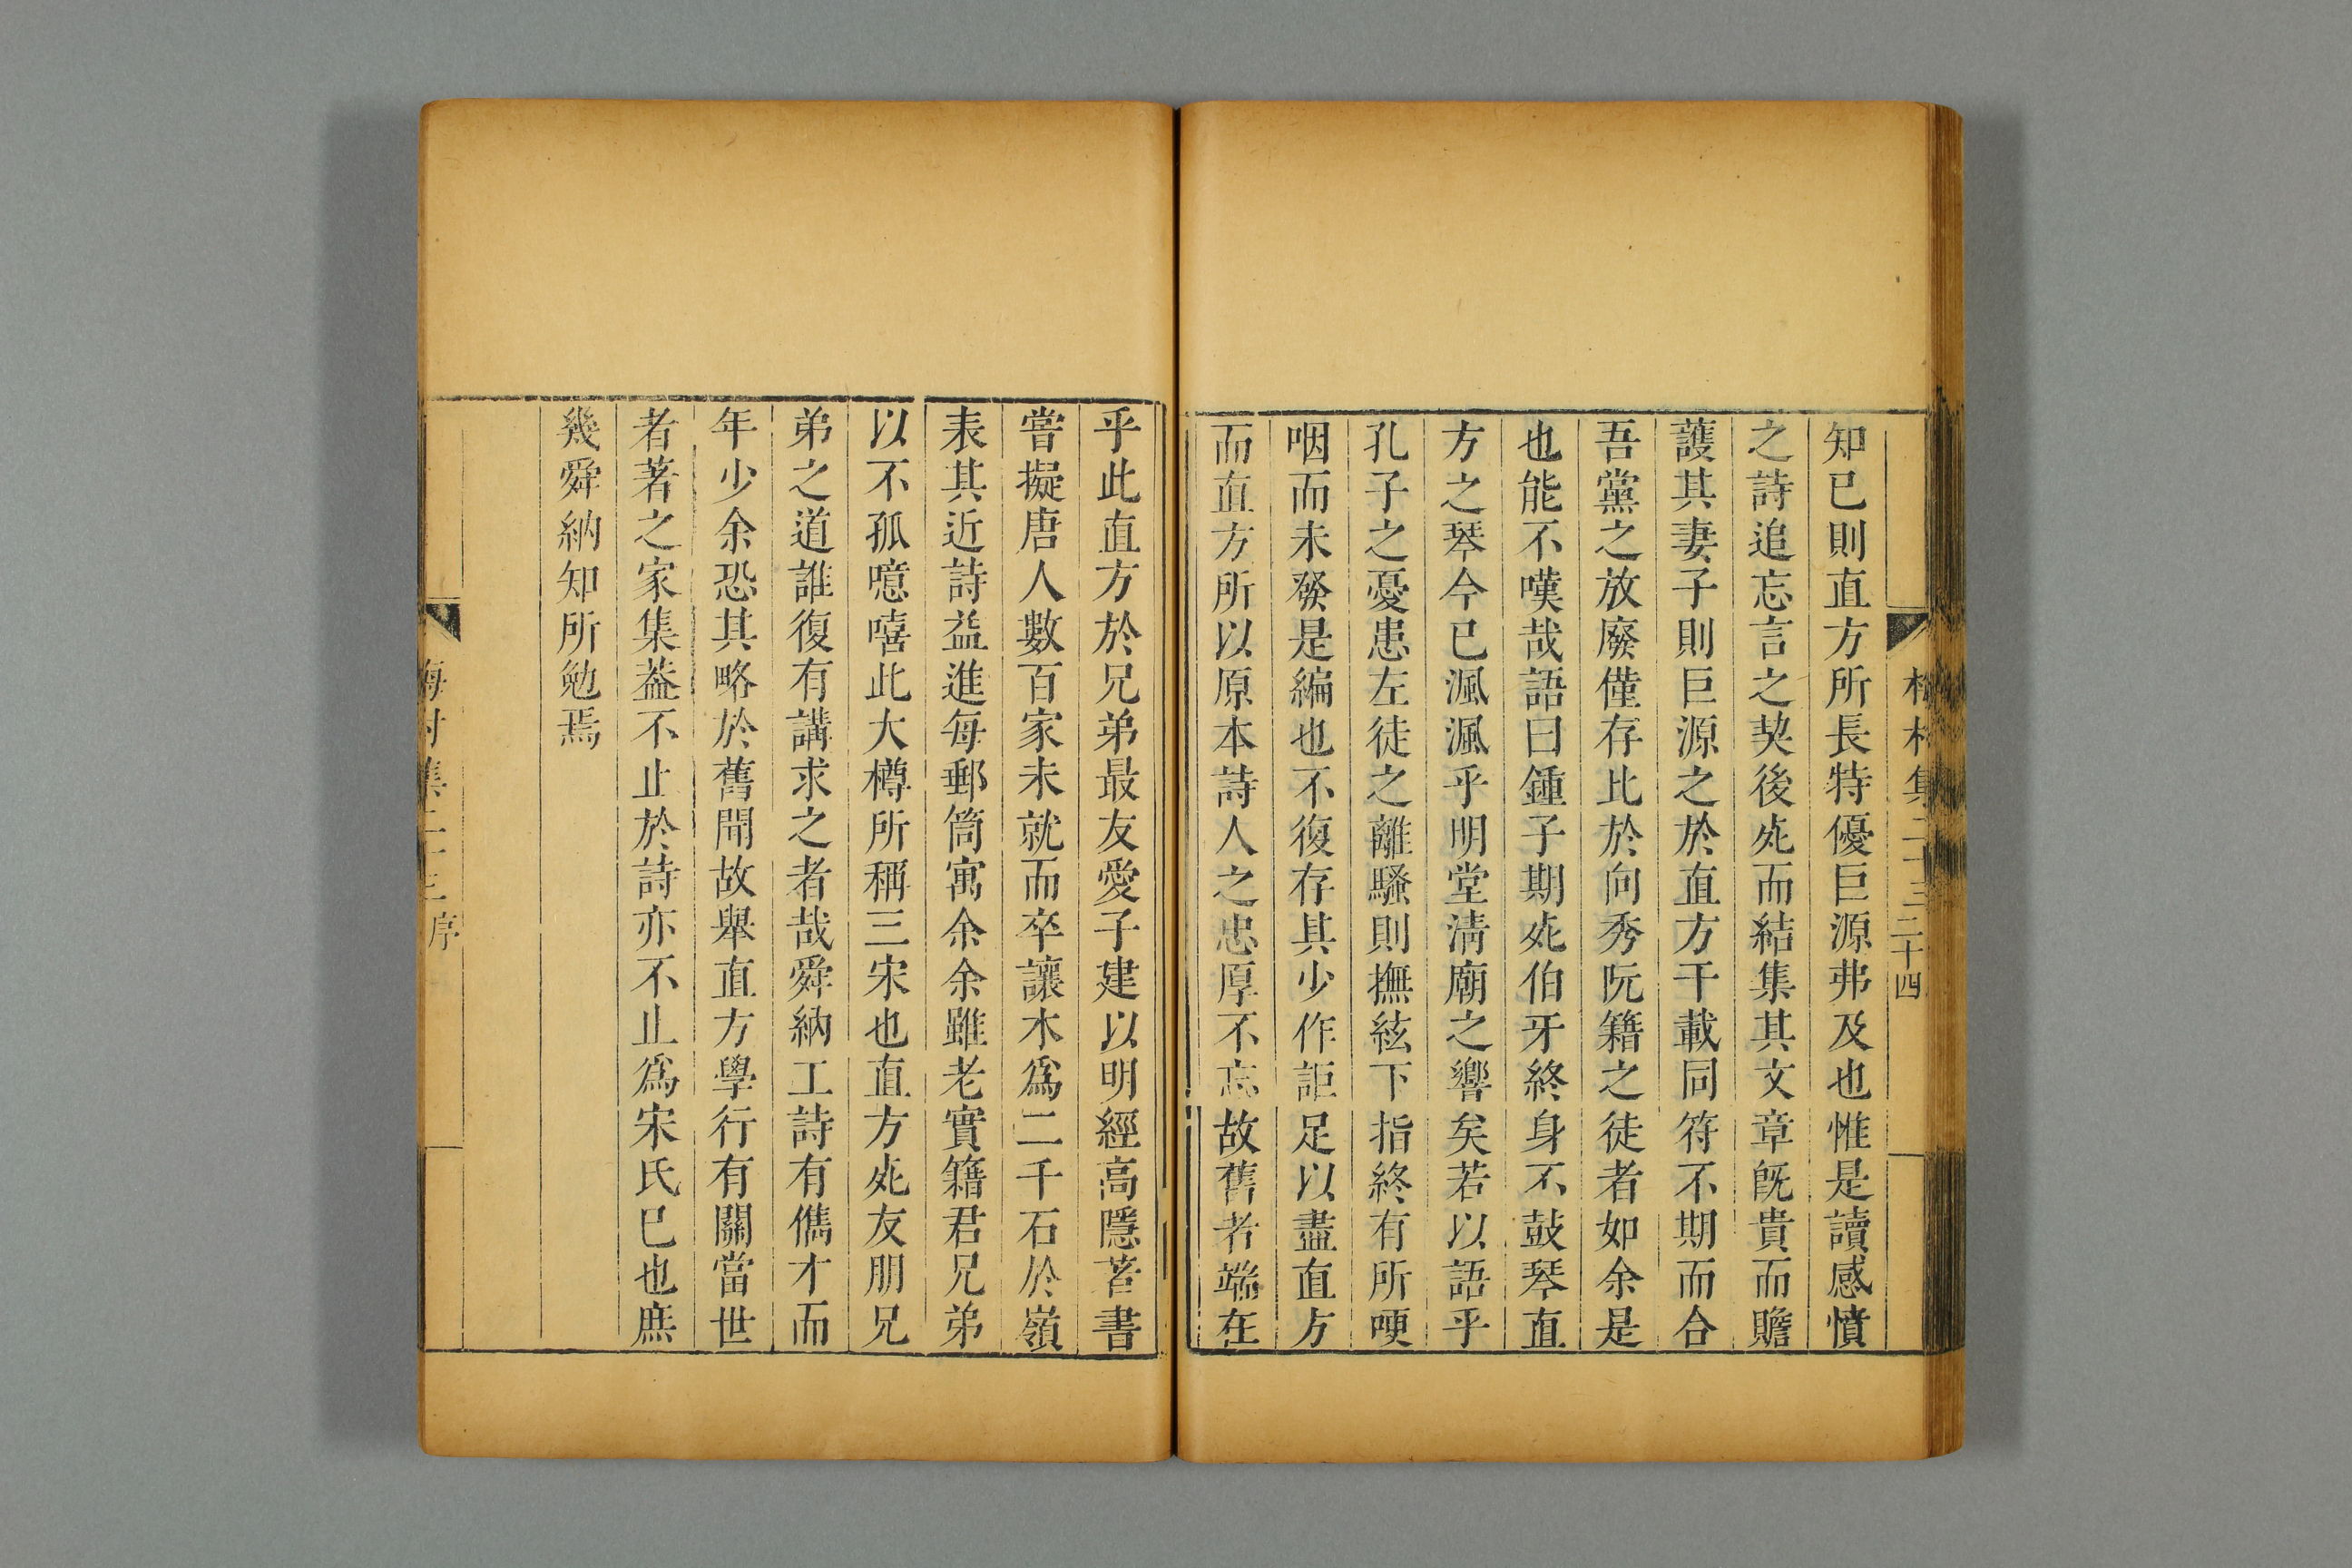 知已則直方所長特優巨源弗及也惟是讀感憤
之詩追忘言之契後死而結集其文章旣貴而贍
護其妻子則巨源之於直方千載同符不期而合
吾黨之放廢僅存比於向秀阮籍之徒者如余是
也能不嘆哉語曰鍾子期死伯牙終身不鼓琴直
方之琴今已渢渢乎明堂淸廟之響矣若以語乎
孔子之憂患左徒之離騷則撫絃下指終有所哽
咽而未發是編也不復存其少作詎足以盡直方
而直方所以原本詩人之忠厚不忘故舊者端在
二十四
乎此直方於兄弟最友愛子建以明經高隱著書
嘗擬唐人數百家未就而卒讓木爲二千石於嶺
表其近詩益進每郵筒寓余余雖老實籍君兄弟
以不孤噫嘻此大樽所稱三宋也直方死友朋兄
弟之道誰復有講求之者哉舜納工詩有儁才而
年少余恐其略於舊聞故舉直方學行有關當世
者著之家集葢不止於詩亦不止爲宋氏已也庶
幾舜納知所勉焉
序